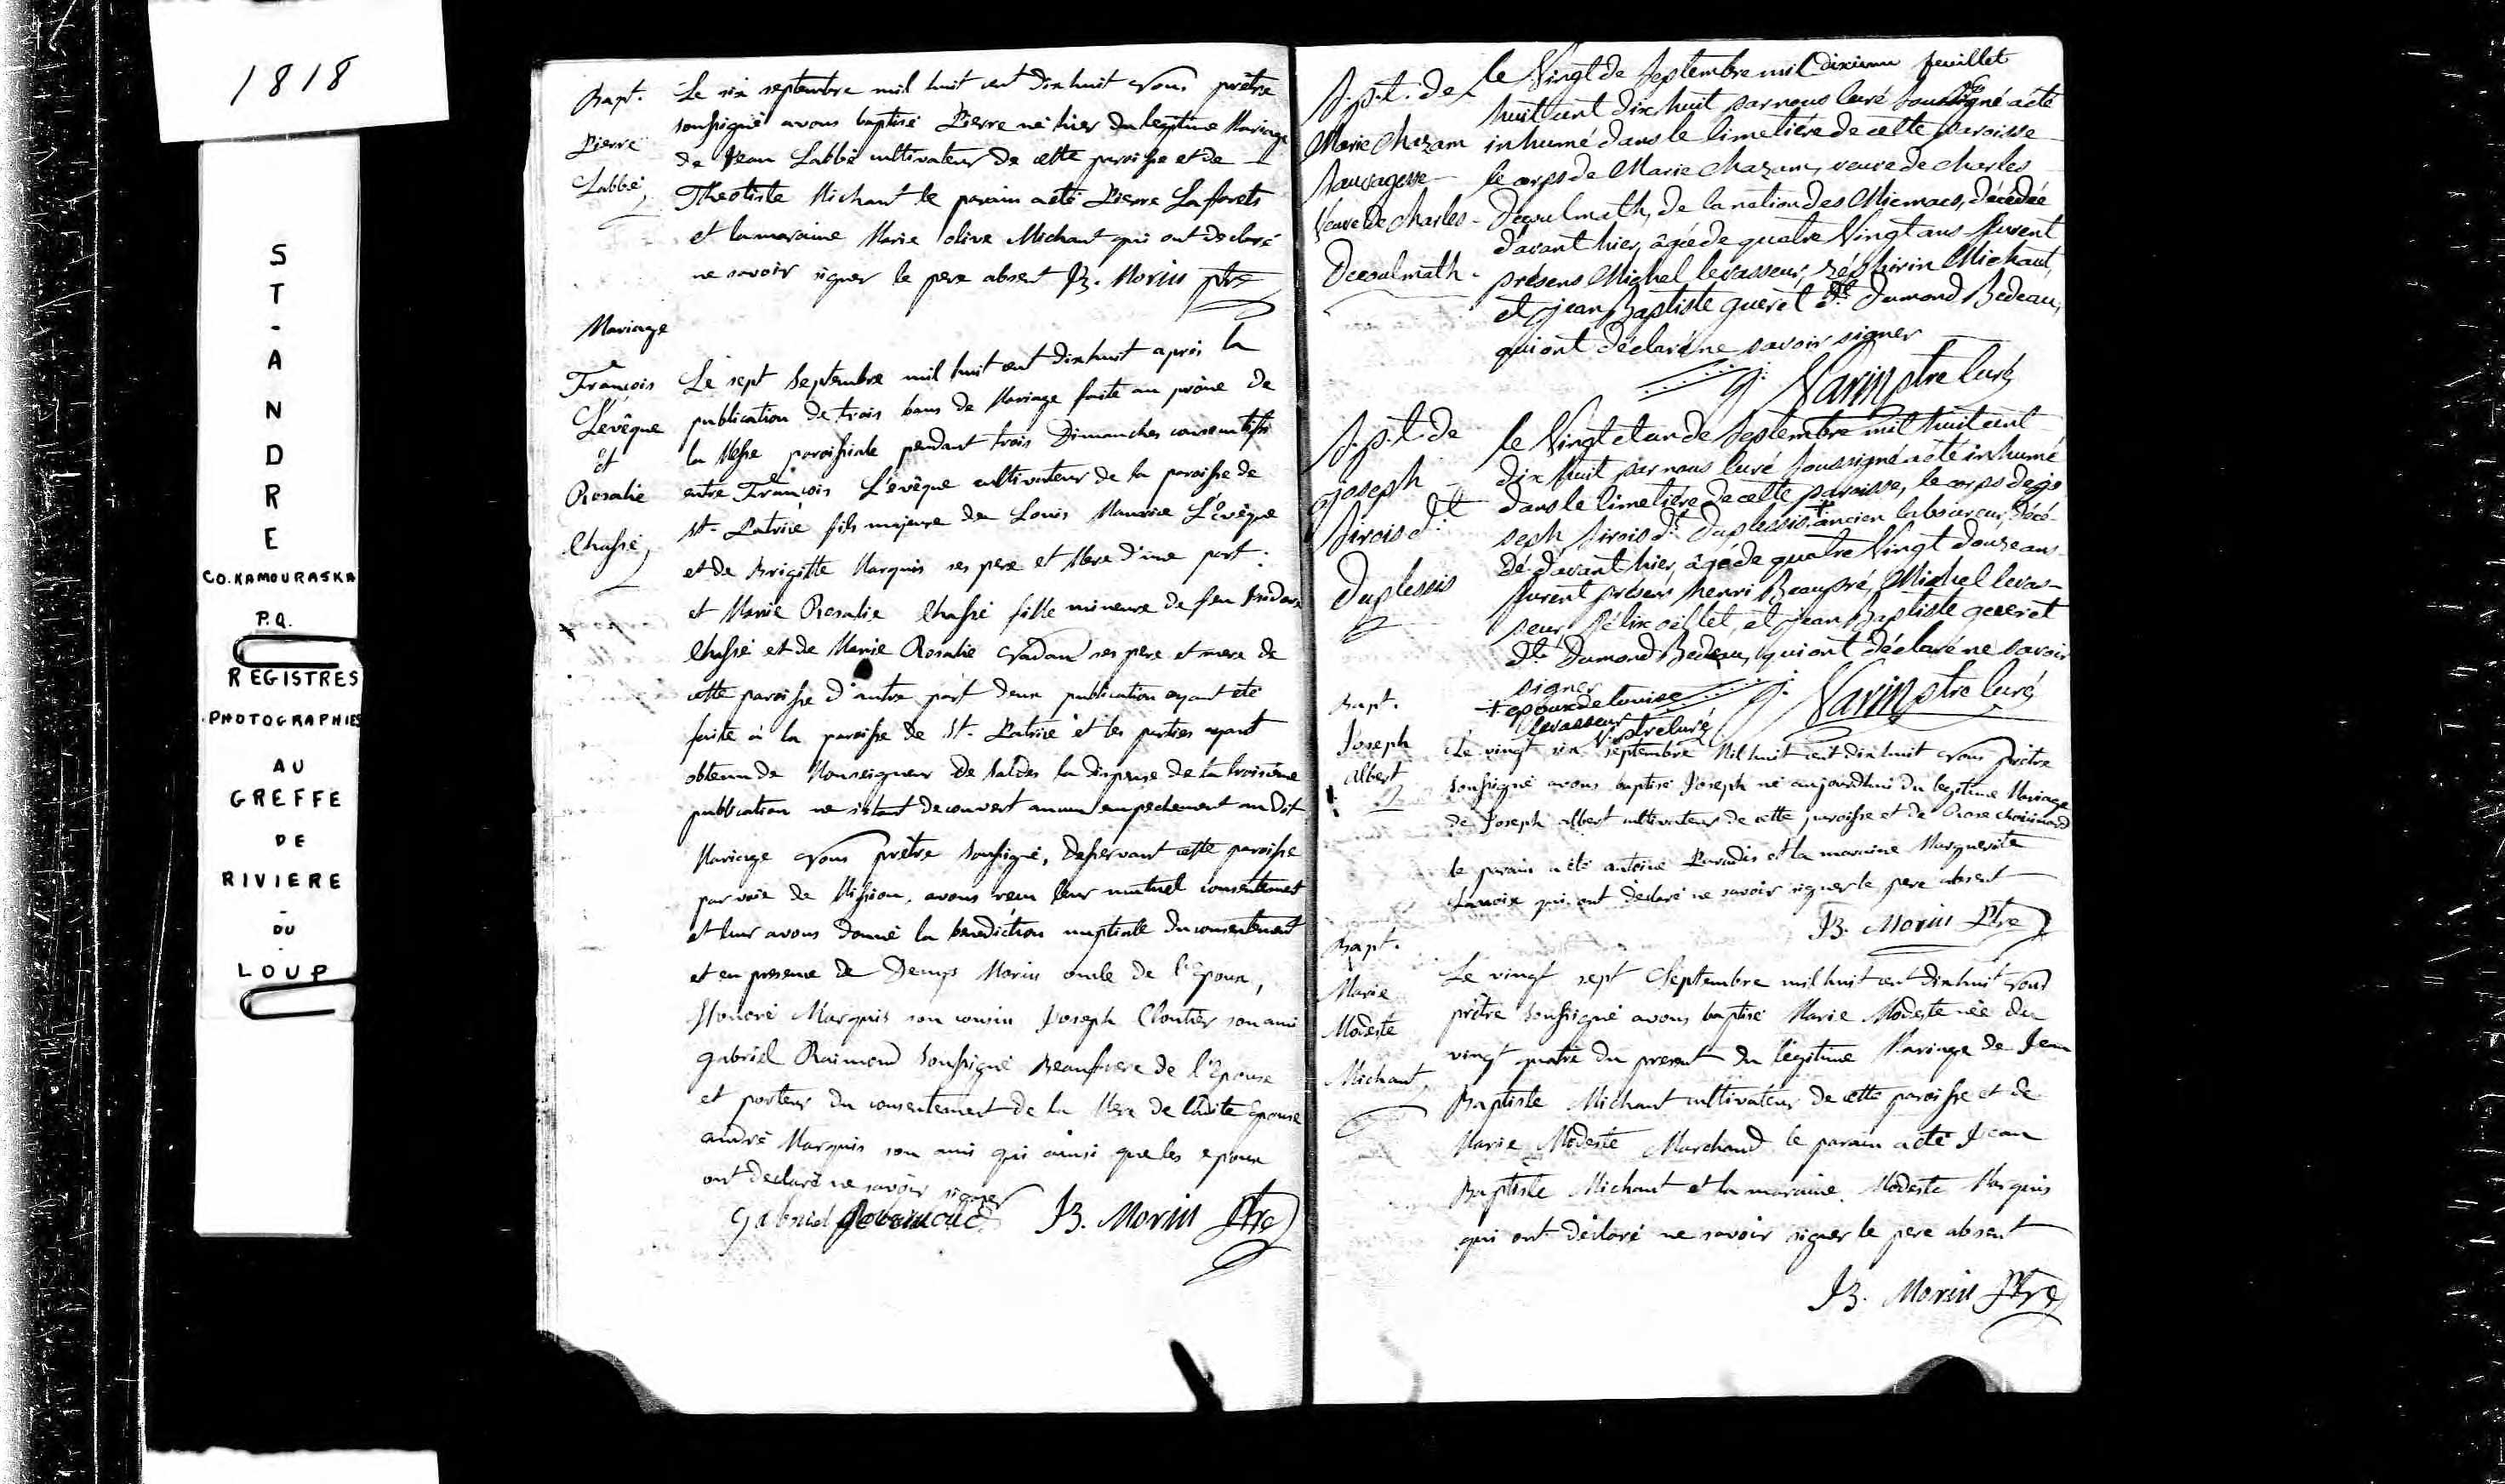 1818
S
T
-
A
N
D
R
E
CO. KAMOURASKA
P.Q.
REGISTRES
PHOTOGRAPHIES
AU
GREFFE
DE
RIVIERE
-
DU
-
LOUP
Bapt.
Pierre
Labbé
Le six septembre mil huit cent dix huit Nous prêtre
soussigné avons baptisé Pierre né hier du legitime Mariage
de Jean Labbé cultivateur de cette paroisse et de
Theotiste Michaut le parain a été Pierre Laforets
et la maraine Marie olive Michaut qui ont declaré
ne savoir signer le pere absent B. Morin ptre
Mariage
François
L'evêque
et
Rosalie
Chassé
Le sept Septembre mil huit cent dix huit après la
publication de trois bans de Mariage faite au prône de
la Messe paroissiale pendant trois Dimanches consecutifs
entre François L'evêque cultivateur de la paroisse de
St- Patrice fils majeure de Louis Maurice L'evêque
et de Brigitte Marquis ses pere et Mere d'une part:
et Marie Rosalie Chassé fille mineure de feu Isidore
Chassé et de Marie Rosalie Nadau ses pere et mere de
cette paroisse d'autre part deux publication ayant été
faite à la paroisse de St- Patrice et les parties ayant
obtenu de Monseigneur de Saldes la dispense de la troisième
publication ne s'étant decouvert aucun empechement au dit
Mariage Nous prêtre soussigné, desservant cette paroisse
par voie de Mission, avons recu leur mutuel consentement
et leur avons donné la benediction nuptiale du consentement
et en presence de Denys Morin oncle de l'Epoux,
Honoré Marquis son cousin Joseph Cloutier son ami
gabriel Raimond soussigné Beaufrere de l'Epouse
et porteur du consentement de la Mere de ladite Epouse
andré Marquis son ami qui ainsi que les epoux
ont declaré ne savoir signer
Gabriel B. Morin Ptre
S.p.t. de
Marie Chazam
Sauvagesse
Veuve de Charles
dixieme feuillet
le Vingt de Septembre mil
huit cent dix huit par nous Curé soussigné a été
inhumé dans le Cimetiére de cette paroisse
le corps de Marie Chazam, veuve de Charles
de la nation des Micmacs, décédée
d'avant hier, âgée de quatre Vingt ans furent
présens Michel levasseur, zéphirin Michaut,
et jean Baptiste gueret dt. Dumond Bedeau,
qui ont déclaré ne savoir signer
J. Varin ptre Curé
S.p.t. de
joseph
Sirois dt
Duplessis
le Vingt et un de Septembre mil huit cent
dix huit par nous Curé soussigné a été inhumé
dans le Cimetiére de cette paroisse, le corps de jo
seph Sirois dt. Duplessis + ancien laboureur, décé-
dé d'avant hier, âgé de quatre Vingt douze ans
furent présens henri Beaupré, Michel levas-
seur félix oillet, et jean Baptiste gueret
dt Dumond Bedeau, qui ont déclaré ne savoir
signer
J. Varin ptre Curé
+ epoux de louise
levasseur V. ptre curé
Bapt.
Joseph
Albert
Le vingt six septembre Mil huit cent dix huit Nous prêtre
soussigné avons baptisé Joseph né aujourdhui du legitime Mariage
de Joseph albert cultivateur de cette paroisse et de Rose
le parain a été antoine Paradis et la maraine Marguerite
qui ont declaré ne savoir signer le pere absent
B. Morin Ptre
Bapt.
Marie
Modeste
Michaut
Le vingt sept Septembre mil huit cent dix huit Nous
prêtre soussigné avons baptisé Marie Modeste née du
vingt quatre du present du legitime Mariage de Jean
Baptiste Michaut cultivateur de cette paroisse et de
Marie Modeste Marchand le parain a été Jean
Baptiste Michaut et la maraine Modeste Marquis
qui ont déclaré ne savoir signer le pere absent
B. Morin Ptre